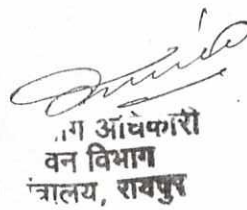 ग अधिकारी
वन विभाग
त्रालय, रायपुर